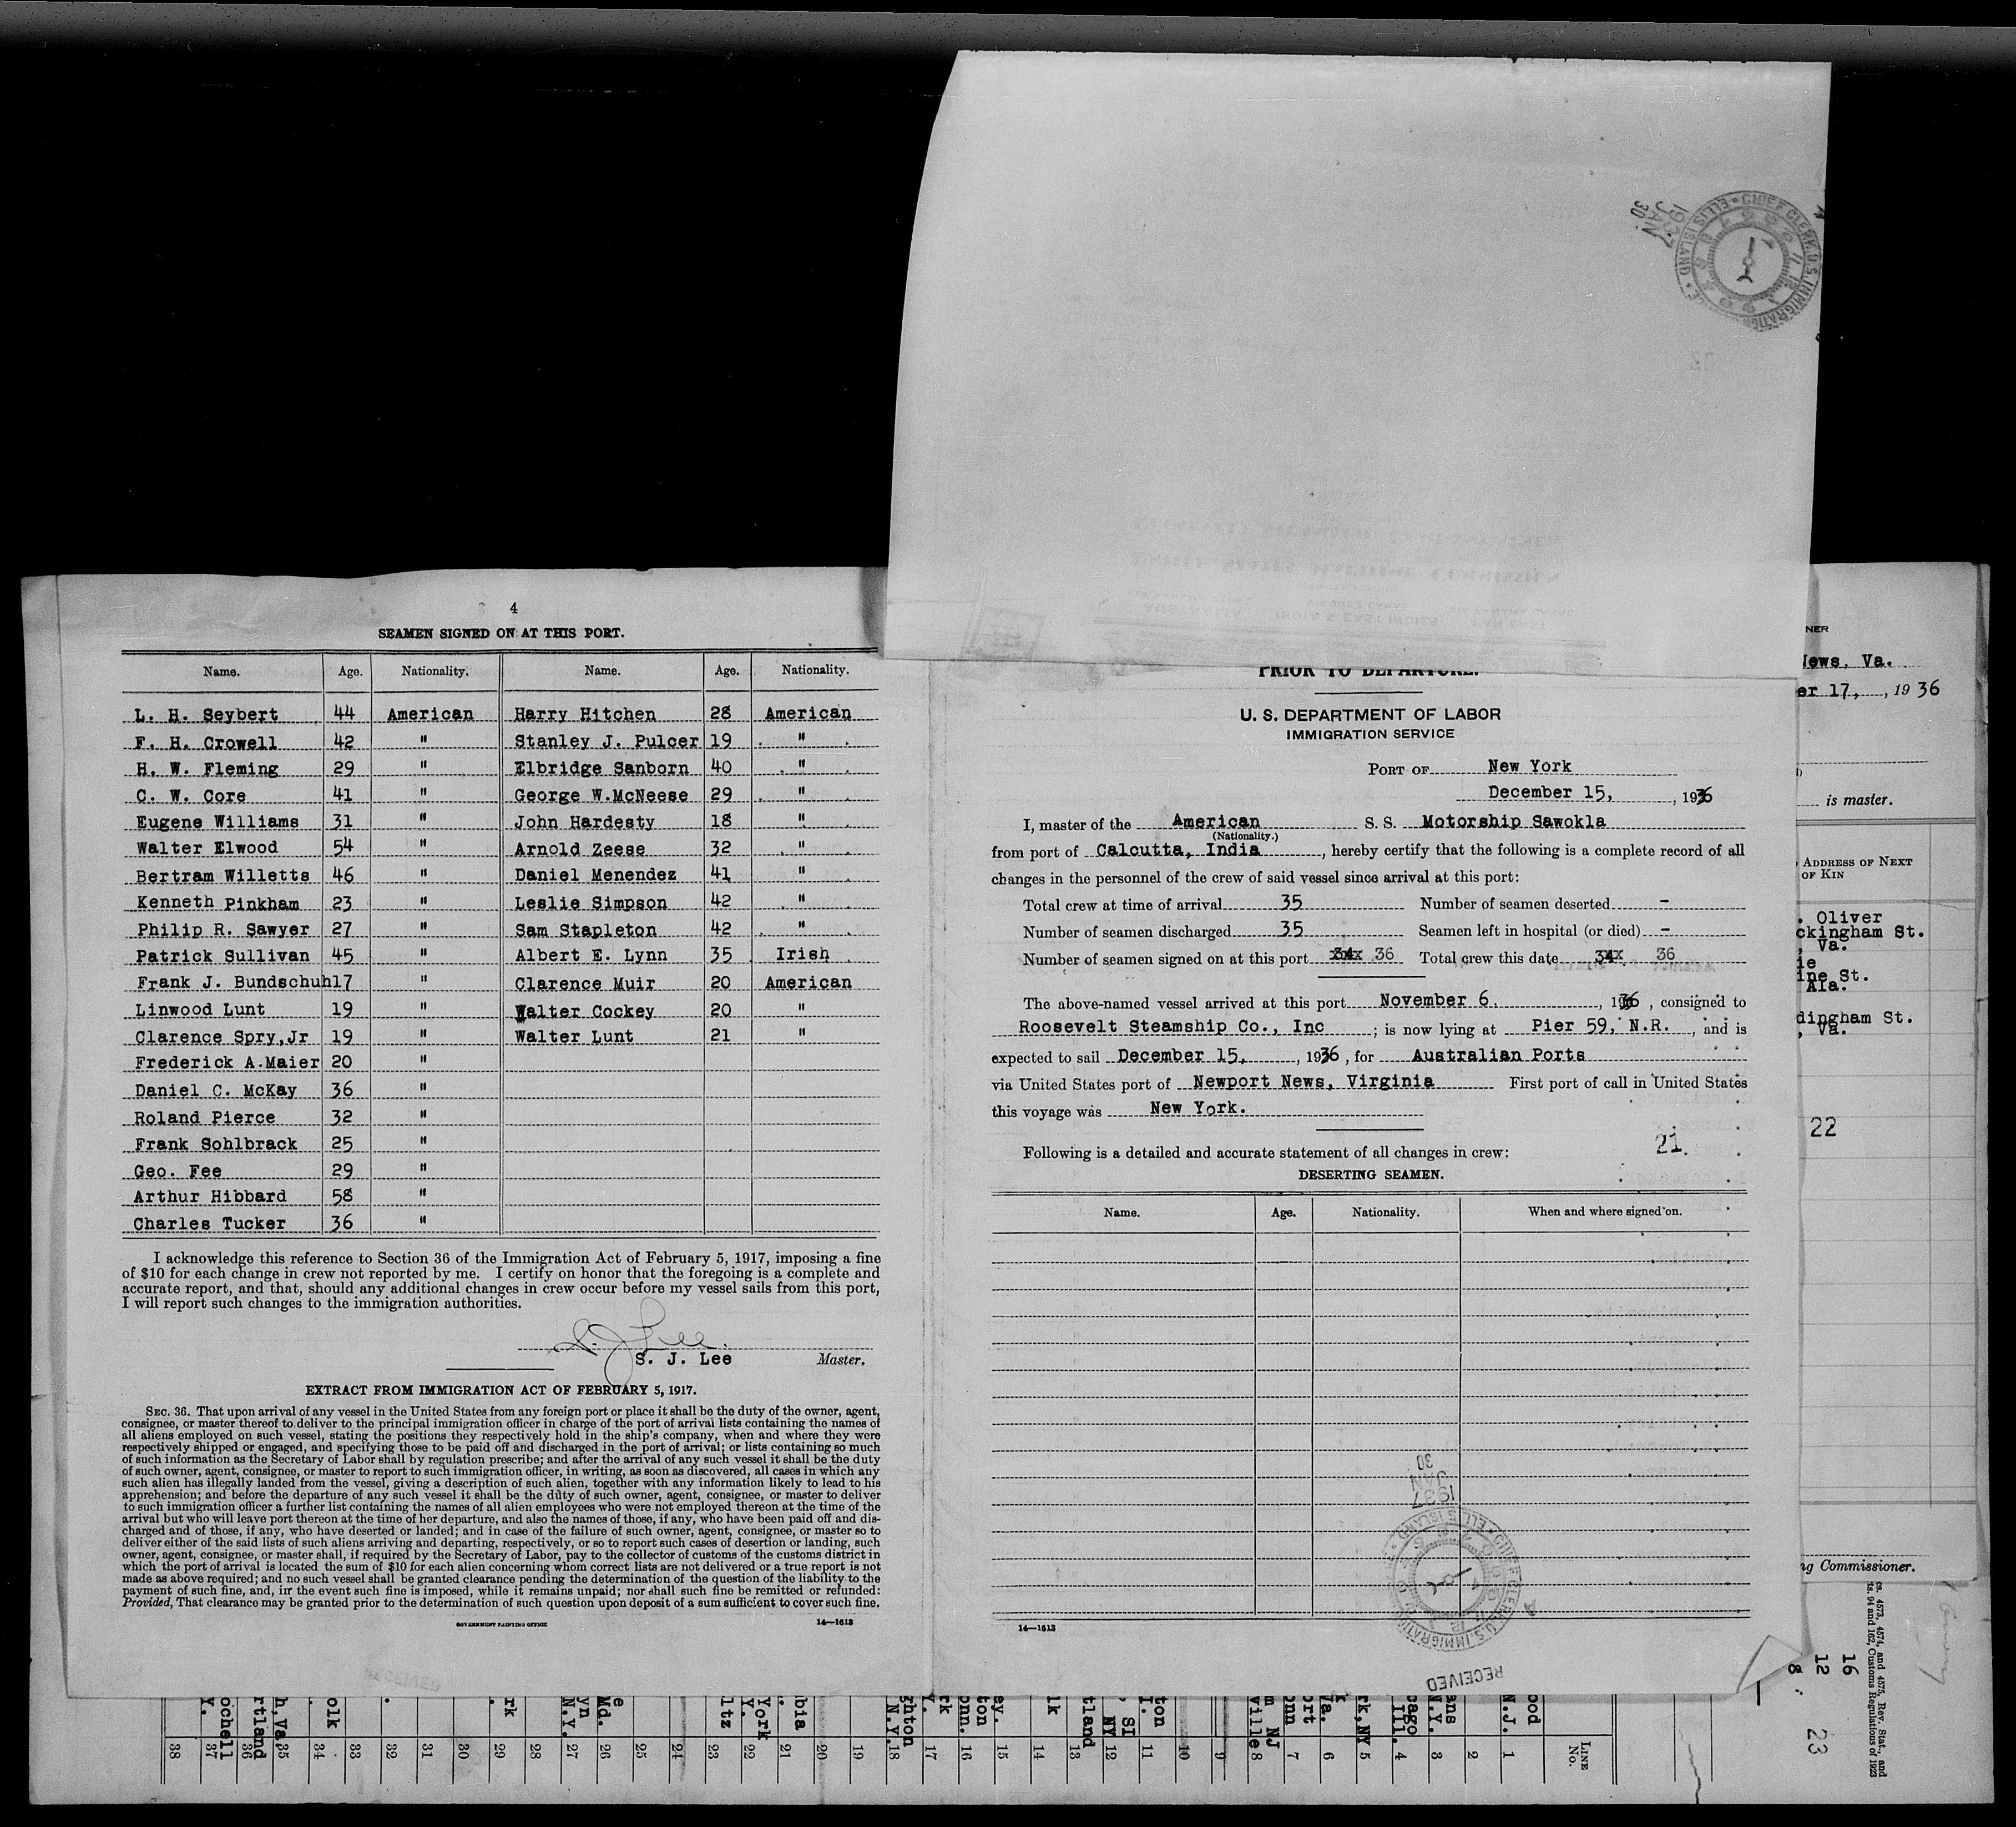 4
SEAMEN SIGNED ON AT THIS PORT.
Name. Age. Nationality. Name. Age. Nationality.
L. H. Seybert 44 American Harry Hitchen 28 American
F. H. Crowell 42 " Stanley J. Pulcer 19 "
H. W. Fleming 29 " Elbridge Sanborn 40 "
C. W. Core 41 " George W.McNeese 29 "
Eugene Williams 31 " John Hardesty 18 "
Walter Elwood 54 " Arnold Zeese 32 "
Bertram Willetts 46 " Daniel Menendez 41 "
Kenneth Pinkham 23 " Leslie Simpson 42 "
Philip R. Sawyer 27 " Sam Stapleton 42 "
Patrick Sullivan 45 " Albert E. Lynn 35 Irish
Frank J. Bundschuh 17 " Clarence Muir 20 American
Linwood Lunt 19 " Walter Cockey 20 "
Clarence Spry,Jr 19 " Walter Lunt 21 "
Frederick A.Maier 20 "
Daniel C. McKay 36 "
Roland Pierce 32 "
Frank Sohlbrack 25 "
Geo. Fee 29 "
Arthur Hibbard 58 "
Charles Tucker 36 "
I acknowledge this reference to Section 36 of the Immigration Act of February 5, 1917, imposing a fine
of $10 for each change in crew not reported by me. I certify on honor that the foregoing is a complete and
accurate report, and that, should any additional changes in crew occur before my vessel sails from this port,
I will report such changes to the immigration authorities.
S. J. Lee
S. J. Lee Master.
EXTRACT FROM IMMIGRATION ACT OF FEBRUARY 5, 1917.
SEC. 36. That upon arrival of any vessel in the United States from any foreign port or place it shall be the duty of the owner, agent,
consignee, or master thereof to deliver to the principal immigration officer in charge of the port of arrival lists containing the names of
all aliens employed on such vessel, stating the positions they respectively hold in the ship's company, when and where they were
respectively shipped or engaged, and specifying those to be paid off and discharged in the port of arrival; or lists containing so much
of such information as the Secretary of Labor shall by regulation prescribe; and after the arrival of any such vessel it shall be the duty
of such owner, agent, consignee, or master to report to such immigration officer, in writing, as soon as discovered, all cases in which any
such alien has illegally landed from the vessel, giving a description of such alien, together with any information likely to lead to his
apprehension; and before the departure of any such vessel it shall be the duty of such owner, agent, consignee, or master to deliver
to such immigration officer a further list containing the names of all alien employees who were not employed thereon at the time of the
arrival but who will leave port thereon at the time of her departure, and also the names of those, if any, who have been paid off and dis-
charged and of those, if any, who have deserted or landed; and in case of the failure of such owner, agent, consignee, or master so to
deliver either of the said lists of such aliens arriving and departing, respectively, or so to report such cases of desertion or landing, such
owner, agent, consignee, or master shall, if required by the Secretary of Labor, pay to the collector of customs of the customs district in
which the port of arrival is located the sum of $10 for each alien concerning whom correct lists are not delivered or a true report is not
made as above required; and no such vessel shall be granted clearance pending the determination of the question of the liability to the
payment of such fine, and, in the event such fine is imposed, while it remains unpaid; nor shall such fine be remitted or refunded:
Provided, That clearance may be granted prior to the determination of such question upon deposit of a sum sufficient to cover such fine.
GOVERNMENT PRINTING OFFICE 14—1613
PRIOR TO DEPARTURE.
U. S. DEPARTMENT OF LABOR
IMMIGRATION SERVICE
PORT OF New York
December 15, , 1936
I, master of the American S. S. Motorship Sawokla
(Nationality.)
from port of Calcutta, India , hereby certify that the following is a complete record of all
changes in the personnel of the crew of said vessel since arrival at this port:
Total crew at time of arrival 35 Number of seamen deserted -
Number of seamen discharged 35 Seamen left in hospital (or died) -
Number of seamen signed on at this port 34x 36 Total crew this date 34x 36
The above-named vessel arrived at this port November 6. , 1936 , consigned to
Roosevelt Steamship Co., Inc ; is now lying at Pier 59, N.R. , and is
expected to sail December 15, , 1936 , for Australian Ports
via United States port of Newport News, Virginia First port of call in United States
this voyage was New York.
21.
Following is a detailed and accurate statement of all changes in crew:
DESERTING SEAMEN.
Name. Age. Nationality. When and where signed on.
14—1613
1937 JAN 30
CHIEF CLERK, U.S. IMMIGRATION ELLIS ISLAND
RECEIVED
1937 JAN 30
CHIEF CLERK, U.S. IMMIGRATION ELLIS ISLAND
NER
News, Va.
er 17, , 1936
is master.
ADDRESS OF NEXT
OF KIN
. Oliver
ckingham St.
, Va.
ie
ine St.
Ala.
dingham St.
, Va.
22
ng Commissioner.
cs. 4573, 4574, and 4575, Rev. Stat., and
ts. 94 and 162, Customs Regulations of 1923
16
12 23
8
LINE No.
1 2 3 4 5 6 7 8 9 10 11 12 13 14 15 16 17 18 19 20 21 22 23 24 25 26 27 28 29 30 31 32 33 34 35 36 37 38